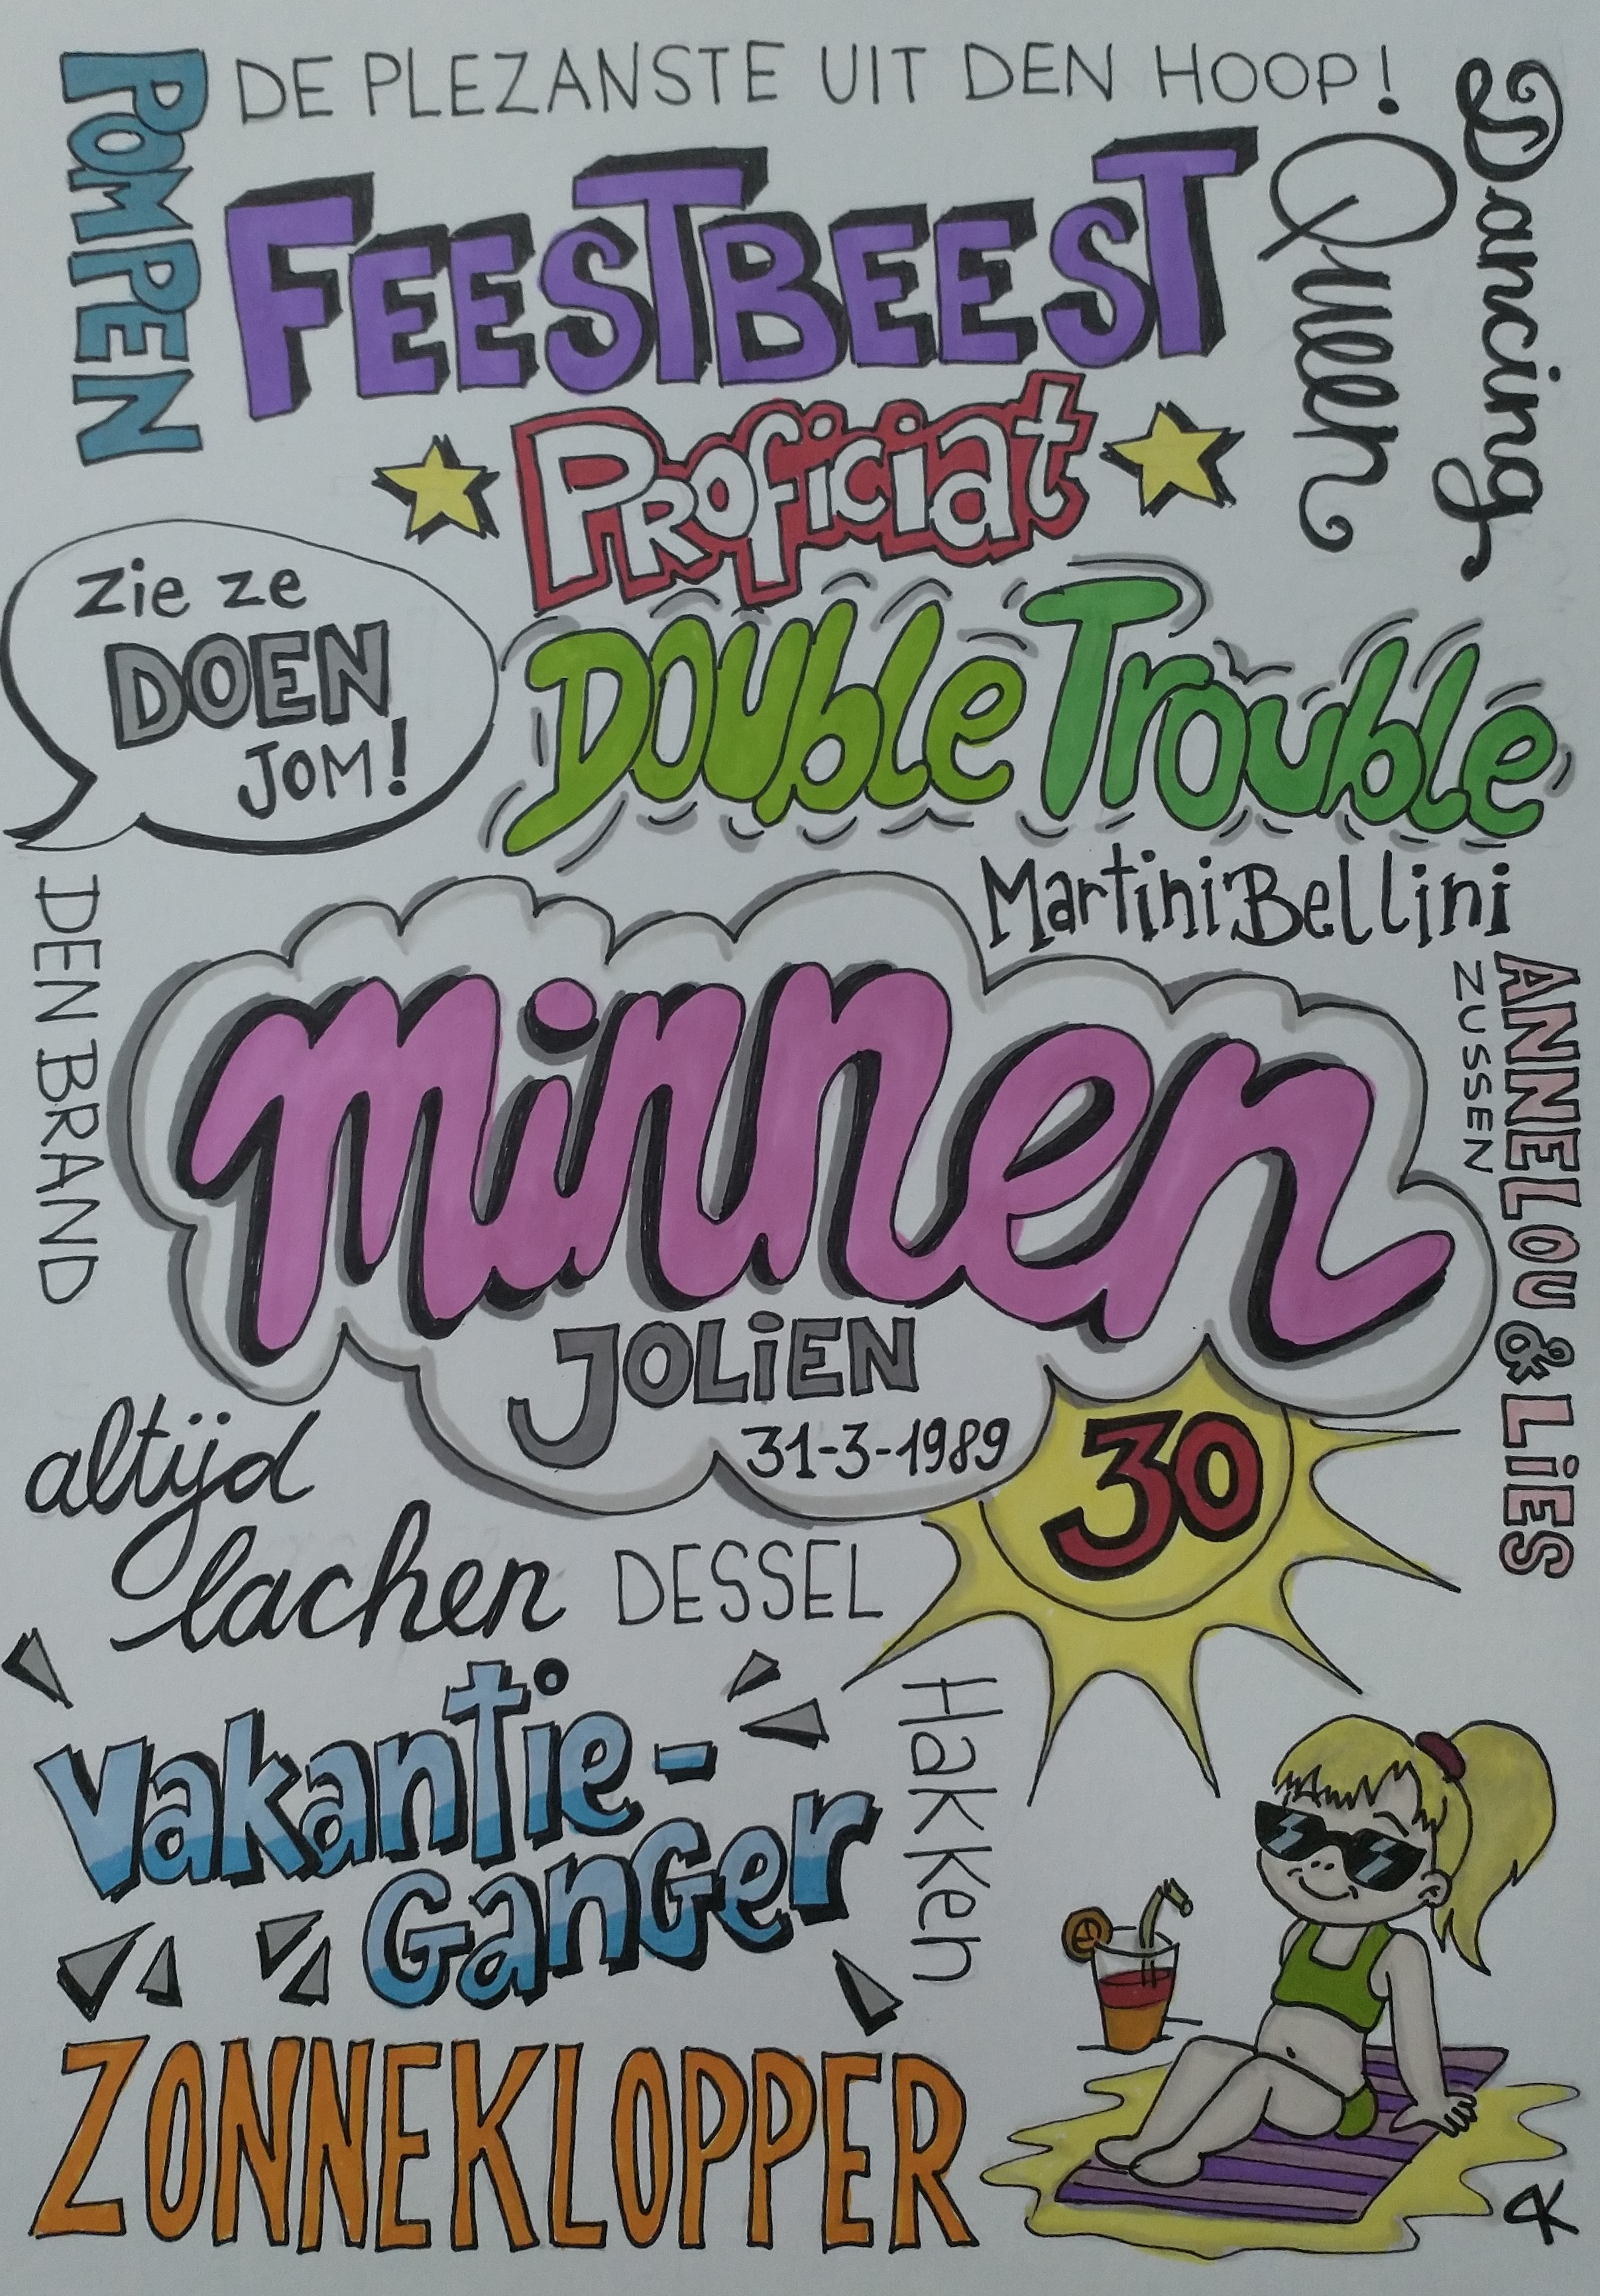 POMPEN
DE PLEZANSTE UIT DEN HOOP!
FEESTBEEST
Dancing
Queen
Proficiat
zie ze
DOEN
JOM!
Double Trouble
Martini Bellini
DEN BRAND
minnen
JOLiEN
31-3-1989
30
ANNELOU & LiES
ZUSSEN
altijd
lachen
DESSEL
Vakantie-
Ganger
Hakken
ZONNEKLOPPER